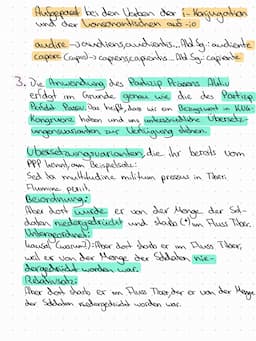 Aufgepasst bei den Verben der i-Konjugation
und der konsonantischen auf -io
audire → audiens, audientis... Abl Sg: audiente
capere (capio) → capiens, capientis... Abl Sg: capiente
3. Die Anwendung des Partizip Präsens Aktiv
erfolgt im Grunde genau wie die des Partizip
Perfekt Passiv. Das heißt, dass wir ein Bezugswort in KNG-
Kongruenz haben und uns unterschiedliche Übersetz-
ungsvarianten zur Verfügung stehen.
Übersetzungsvarianten, die ihr bereits vom
PPP kennt, am Beispielsatz:
Sed ibi multitudine militum pressus in Tiberi
flumine periit.
Beiordnung:
Aber dort wurde er von der Menge der Sol-
daten niedergedrückt und starb (*) im Fluss Tiber.
Untergeordnet:
kausal (warum?): Aber dort starb er im Fluss Tiber,
weil er von der Menge der Soldaten nie-
dergedrückt worden war.
Relativsatz:
Aber dort starb er im Fluss Tiber, der er von der Menge
der Soldaten niedergedrückt worden war.